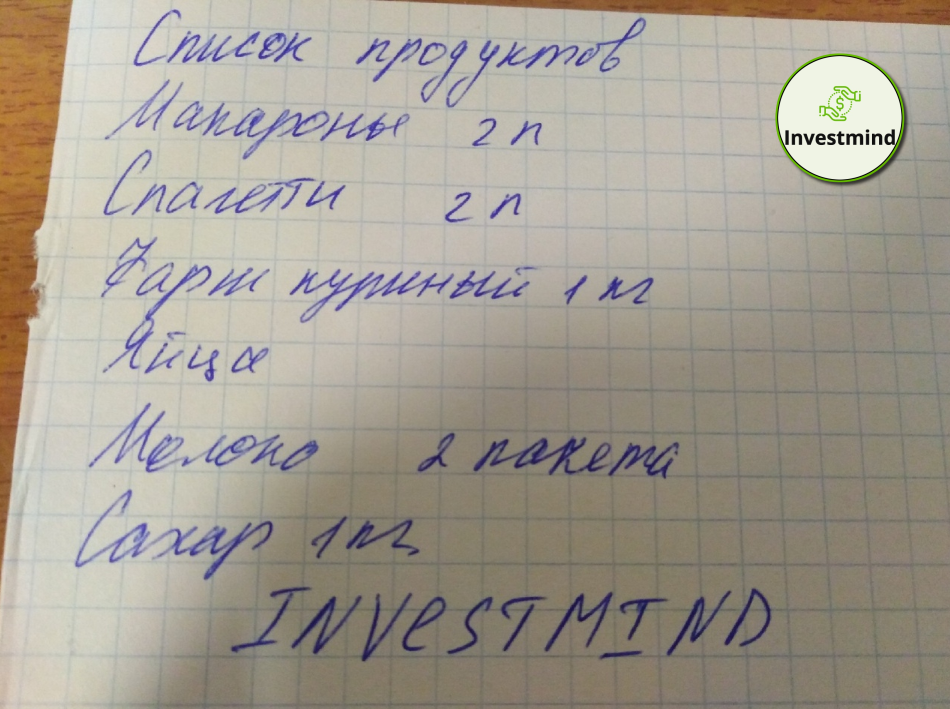 Список продуктов
Макароны 2 п
Спагетти 2 п
Фарш куриный 1 кг
Яйца
Молоко 2 пакета
Сахар 1 кг
INVeSTMIND
Investmind